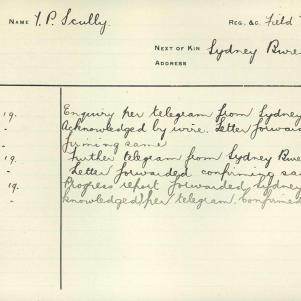 NAME T. P. Scully. REG. &C. Field
NEXT OF KIN Sydney Bure
ADDRESS
19. Enquiry per telegram from Sydney
" Acknowledged by wire. Letter forwar
firming same
19. Further telegram from Sydney Bure
" Letter forwarded confirming sa
19. Progress report forwarded Sydney
" knowledged per telegram confirmed